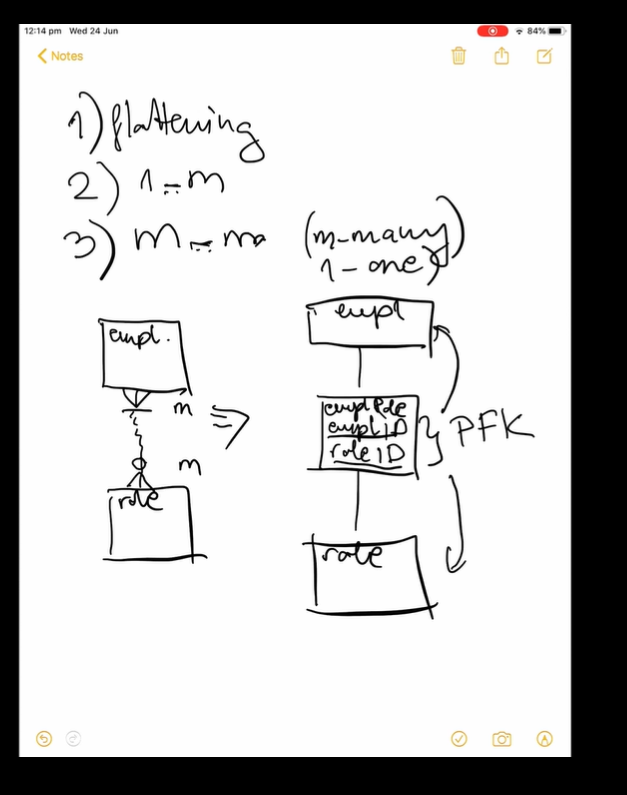 12:14 pm Wed 24 Jun
84%
Notes
1) flattening
2) 1-m
3) m-m
(m-many
1-one)
empl
empl.
m
m
role
emplRole
emplID
roleID
PFK
role